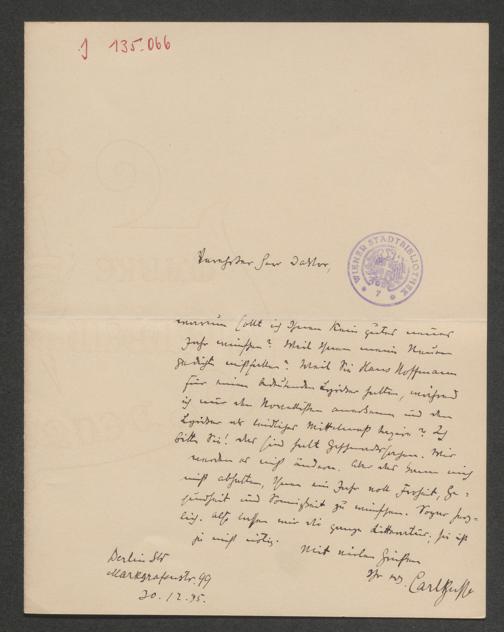 J 135.066
Verehrter Herr Doktor,
WIENER STADTBIBLIOTHEK
7
warum sollt ich Ihnen kein gutes neues
Jahr wünschen? Weil Ihnen meine Neuen
Gedichte mißfallen? Weil Sie Hans Hoffmann
für einen bedeutenden Lyriker halten, während
ich nur den Novellisten anerkenne und den
Lyriker als leidliches Mittelmaß? Ich
bitte Sie! das sind halt Geschmackssachen. Wir
werden es nicht ändern. Aber das kann mich
nicht abhalten, Ihnen ein Jahr voll Frohheit, Ge-
sundheit und Sonnigkeit zu wünschen. Sogar herz-
lich. Also lassen wir die ganze Litteratur; sie ist
ja nicht nötig.
Mit vielen Grüßen
Ihr
Carl Busse
Berlin SW
Markgrafenstr. 99
30.12.95.